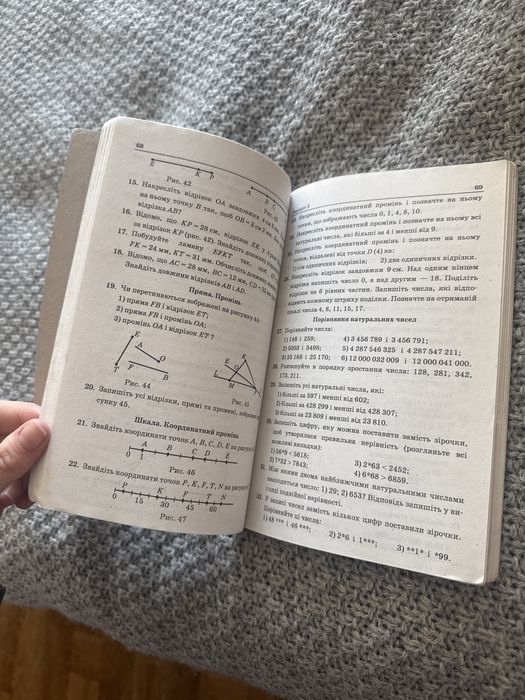 68
E K T
Рис. 42
A B C
Рис. 43
15. Накресліть відрізок OA завдовжки 4 см
на ньому точку B так, щоб OB = 3 см
відрізка AB?
16. Відомо, що KP = 28 см, відрізок EK у 4 рази
за відрізок KP (рис. 42). Знайдіть довжину
17. Побудуйте ламану EFKT так, щоб EF
FK = 24 мм, KT = 31 мм. Обчисліть довжину
18. Відомо, що AC = 28 мм, BC = 12 мм, CD
Знайдіть довжини відрізків AB і AD.
Пряма. Промінь
19. Чи перетинаються зображені на рисунку 44:
1) пряма FB і відрізок ET;
2) пряма FB і промінь OA;
3) промінь OA і відрізок ET?
E A O T F B
Рис. 44
K E O L M
Рис. 45
20. Запишіть усі відрізки, прямі та промені, зображені
сунку 45.
Шкала. Координатний промінь
21. Знайдіть координати точок A, B, C, D, E на рисунку
A B C D E
0 1
Рис. 46
22. Знайдіть координати точок P, K, F, T, N на
P K F T N
0 15 30 45 60
Рис. 47
69
Накресліть координатний промінь і позначте на ньому
точки, що зображають числа 0, 1, 4, 8, 10.
Накресліть координатний промінь і позначте на ньому всі
натуральні числа, які більші за 4 і менші від 9.
Накресліть координатний промінь і позначте на ньому
точки, віддалені від точки D (4) на:
1) п'ять одиничних відрізків; 2) два одиничних відрізки.
Накресліть відрізок завдовжки 9 см. Над одним кінцем
відрізка напишіть число 0, а над другим — 18. Поділіть
відрізок на 6 рівних частин. Запишіть числа, які відпо-
відають кожному штриху поділки. Позначте на отриманій
шкалі числа 4, 8, 11, 15, 17.
Порівняння натуральних чисел
27. Порівняйте числа:
1) 148 і 259; 4) 3 456 789 і 3 456 791;
2) 5003 і 3498; 5) 4 287 546 325 і 4 287 547 211;
3) 25 168 і 25 170; 6) 12 000 032 009 і 12 000 041 000.
28. Розташуйте в порядку зростання числа: 128, 281, 342,
173, 211.
29. Запишіть усі натуральні числа, які:
1) більші за 597 і менші від 602;
2) більші за 428 299 і менші від 428 307;
3) більші за 23 809 і менші від 23 810.
30. Запишіть цифру, яку можна поставити замість зірочки,
щоб утворилася правильна нерівність (розгляньте всі
можливі випадки):
1) 56*9 < 5618; 3) 2*63 < 2452;
2) 7*32 > 7843; 4) 6*68 > 6859.
31. Між якими двома найближчими натуральними числами
знаходяться число: 1) 29; 2) 6537 Відповідь запишіть у ви-
гляді подвійної нерівності.
32. У запасі чисел замість кількох цифр поставили зірочки.
Порівняйте ці числа:
1) 48 *** і 46 ***; 2) 2*6 і 1***; 3) **1* і *99.